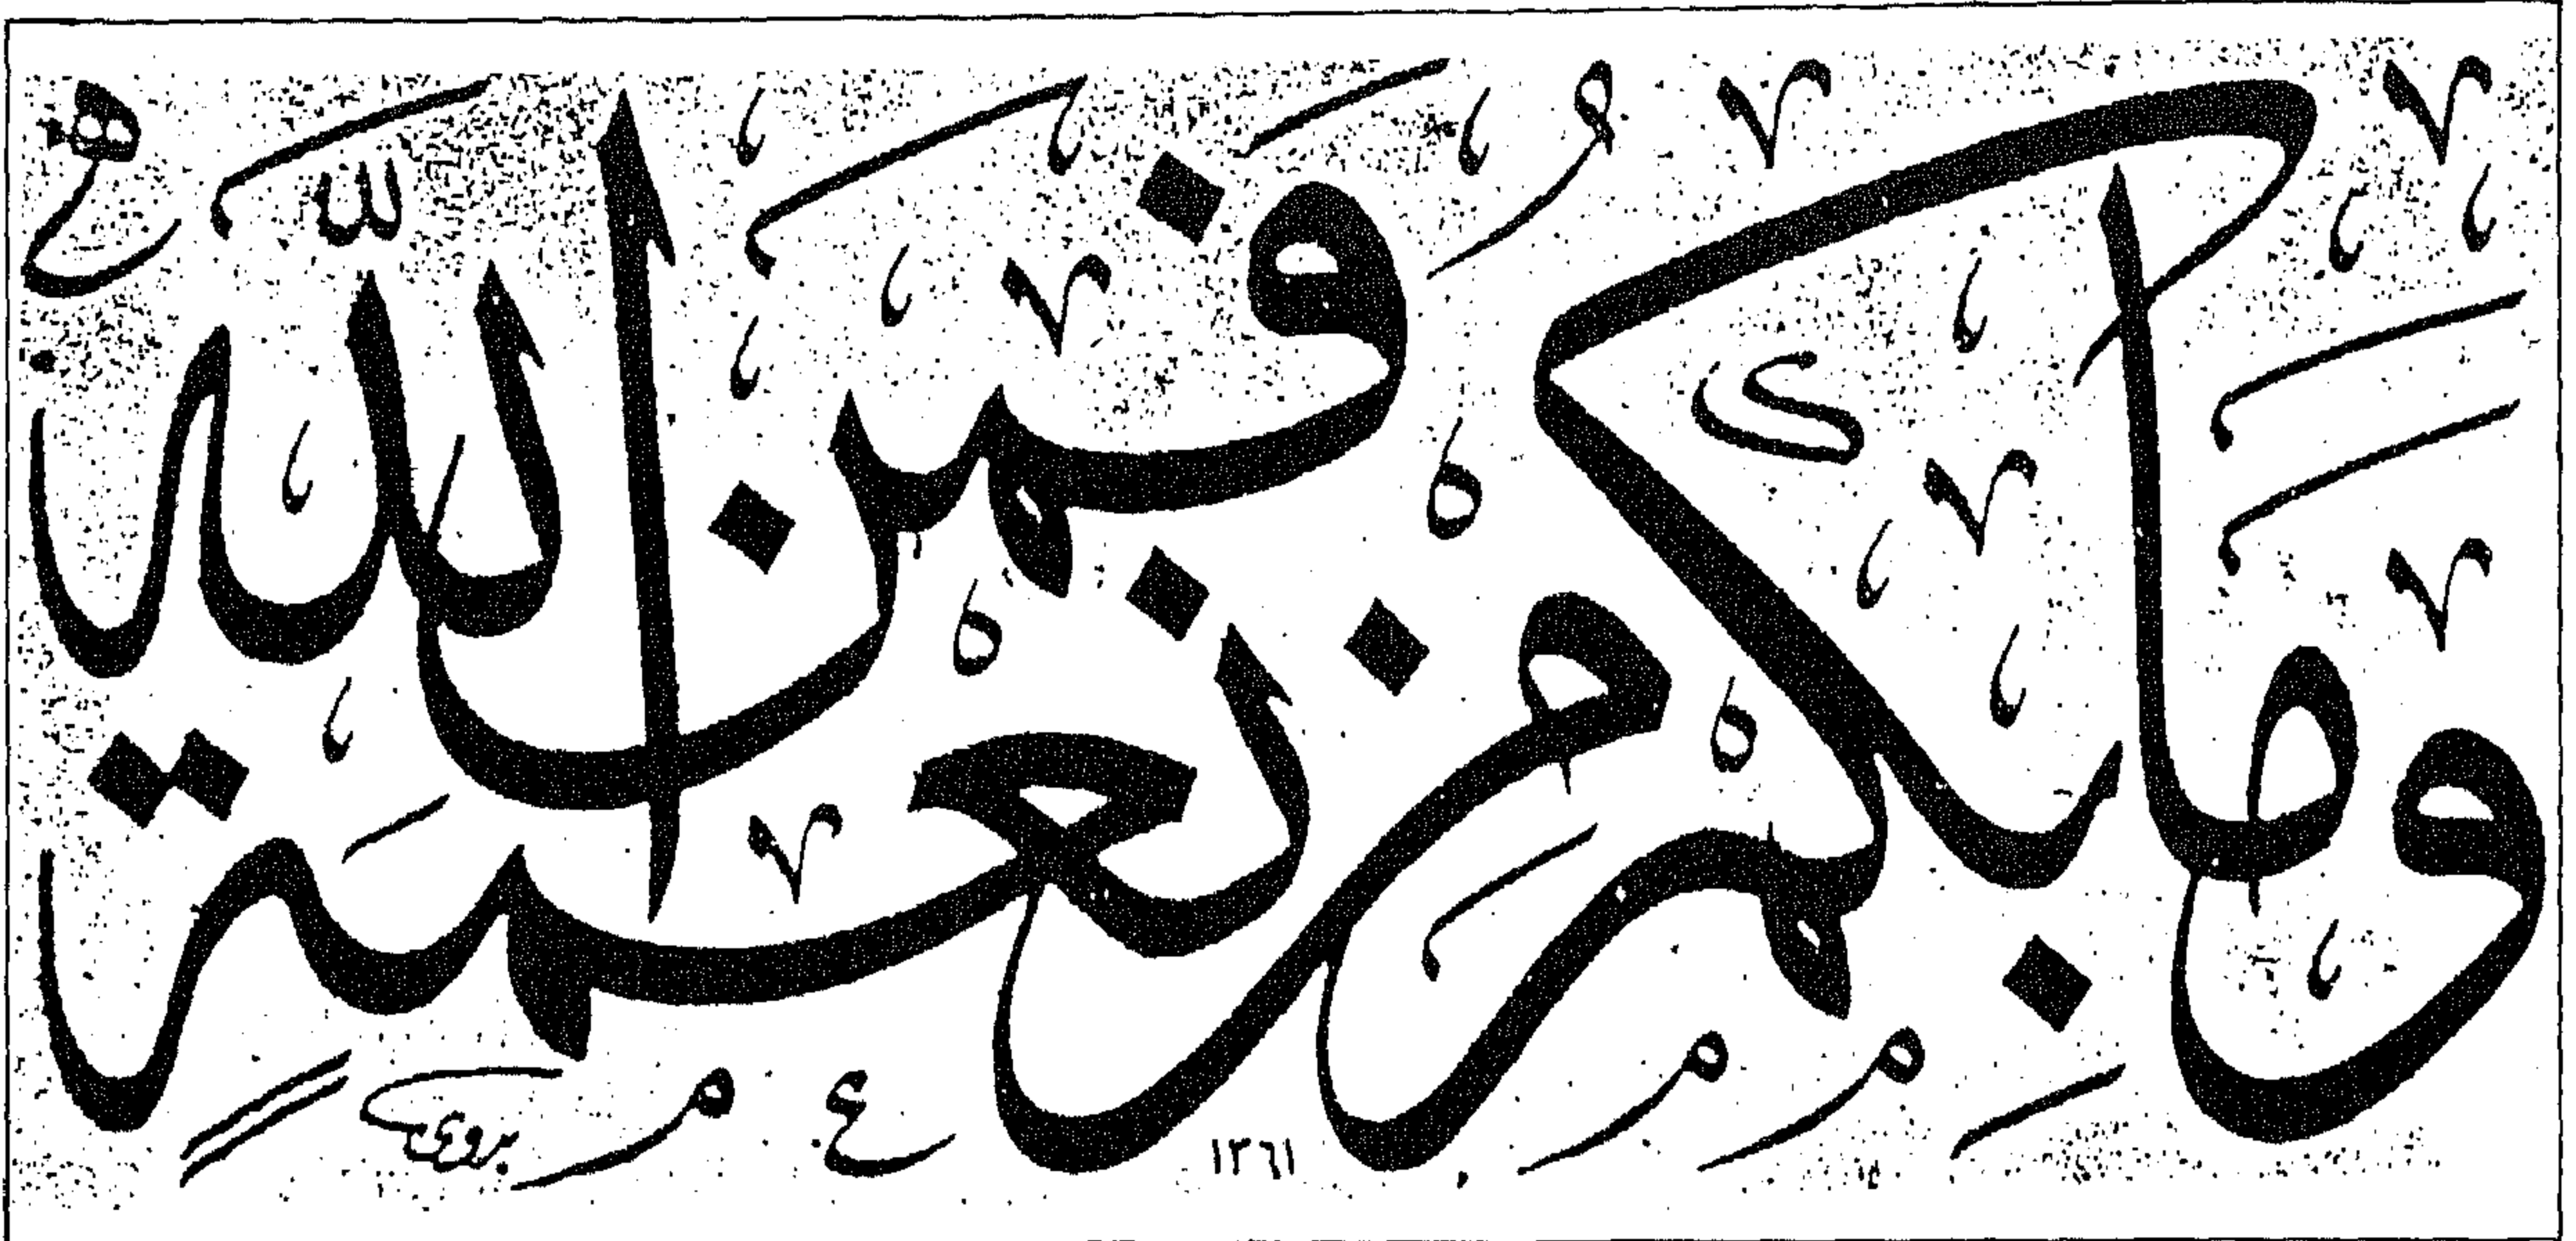 وما بكم من نعمة فمن الله
بدوي
١٣٦١